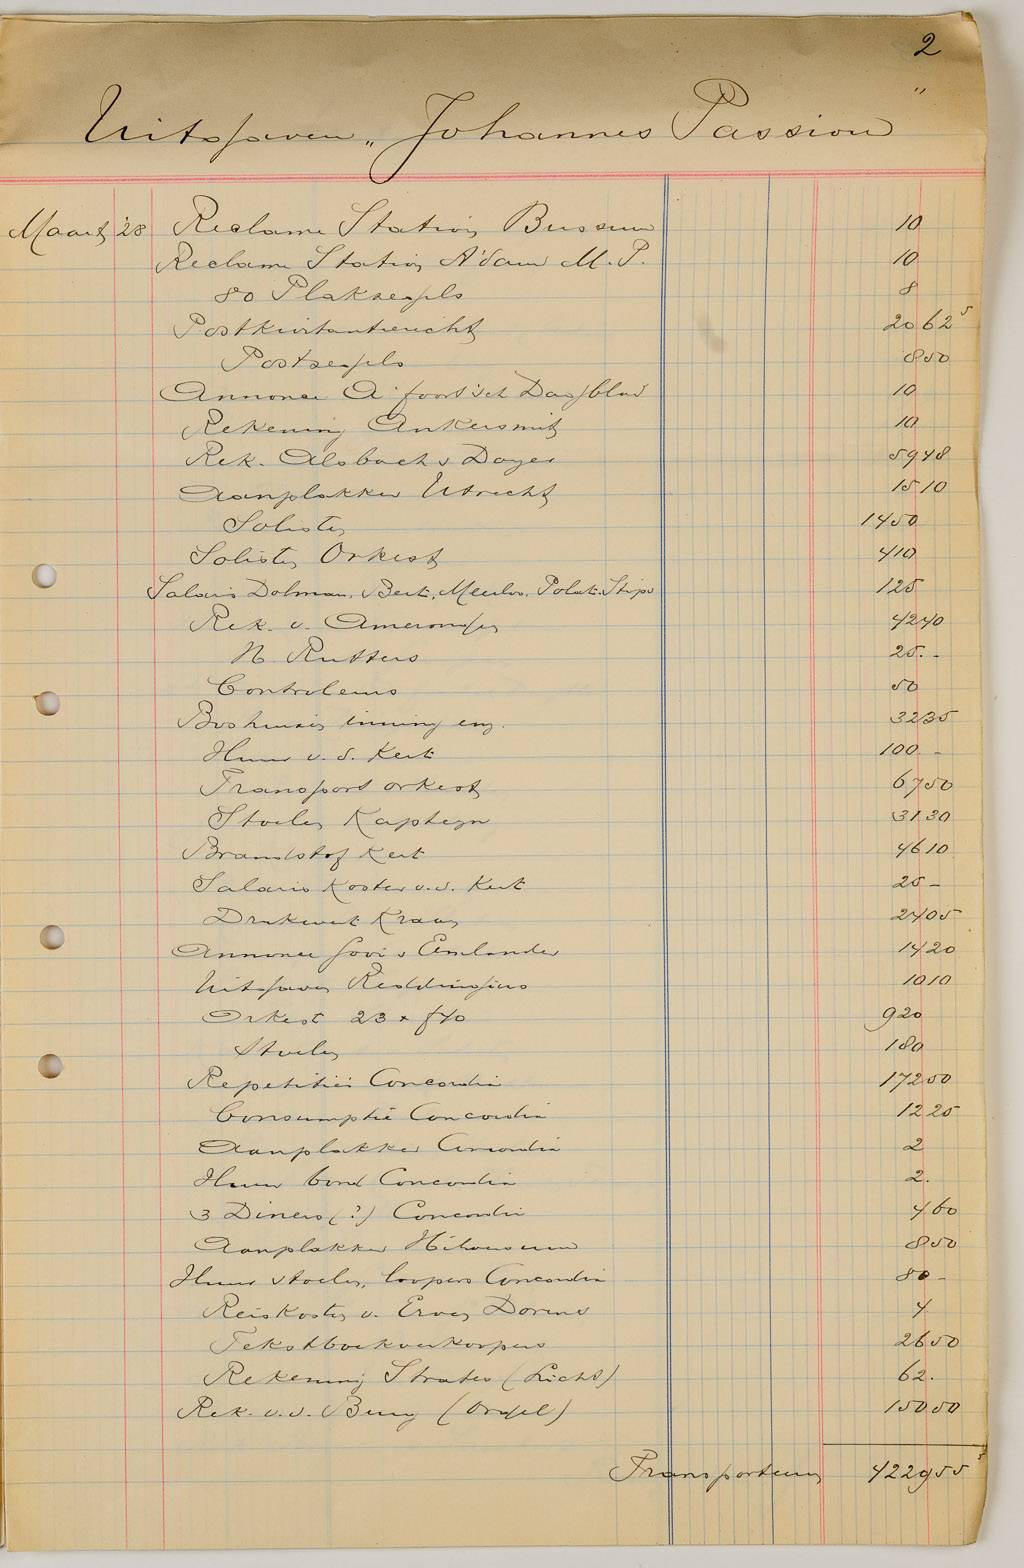 2
Uitgaven „Johannes Passion"
Maart '28 Reclame Station Bussum 10
Reclame Station A'dam M.P. 10
80 Plakzegels 8
Postkwitantierecht 20 62 5
Postzegels 8 50
Annonce A'foortsch Dagblad 10
Rekening Ankersmit 10
Rek. Alsbach & Doyer 59 48
Aanplakken Utrecht 15 10
Solisten 1450
Solisten Orkest 410
Salaris Dolman, Bert, Meerloo, Polat. Stips 125
Rek. v. Amerongen 42 40
N. Rutters 25. -
Controleurs 50
Boshuis inning enz. 32 35
Huur v. d. Kerk 100 -
Transport orkest 67 50
Stoelen Kapteyn 31 30
Brandstof Kerk 46 10
Salaris Koster v.d. Kerk 25 -
Drukwerk Kraay 24 05
Annonce Gooi & Eemlander 14 20
Uitgaven Reddingius 10 10
Orkest 23 x f40 920
Stoelen 180
Repetities Concordia 172 50
Consumptie Concordia 12 25
Aanplakken Concordia 2
Huur bord Concordia 2.
3 Diners (?) Concordia 4 60
Aanplakken Hilversum 8 50
Huur stoelen, loopers Concordia 80 -
Reiskosten v. Erven Dorens 4
Tekstboekverkoopers 26 50
Rekening Straten (Licht) 62.
Rek. v.d. Burg (Orgel) 150 50
Transporteeren 4229 55 5